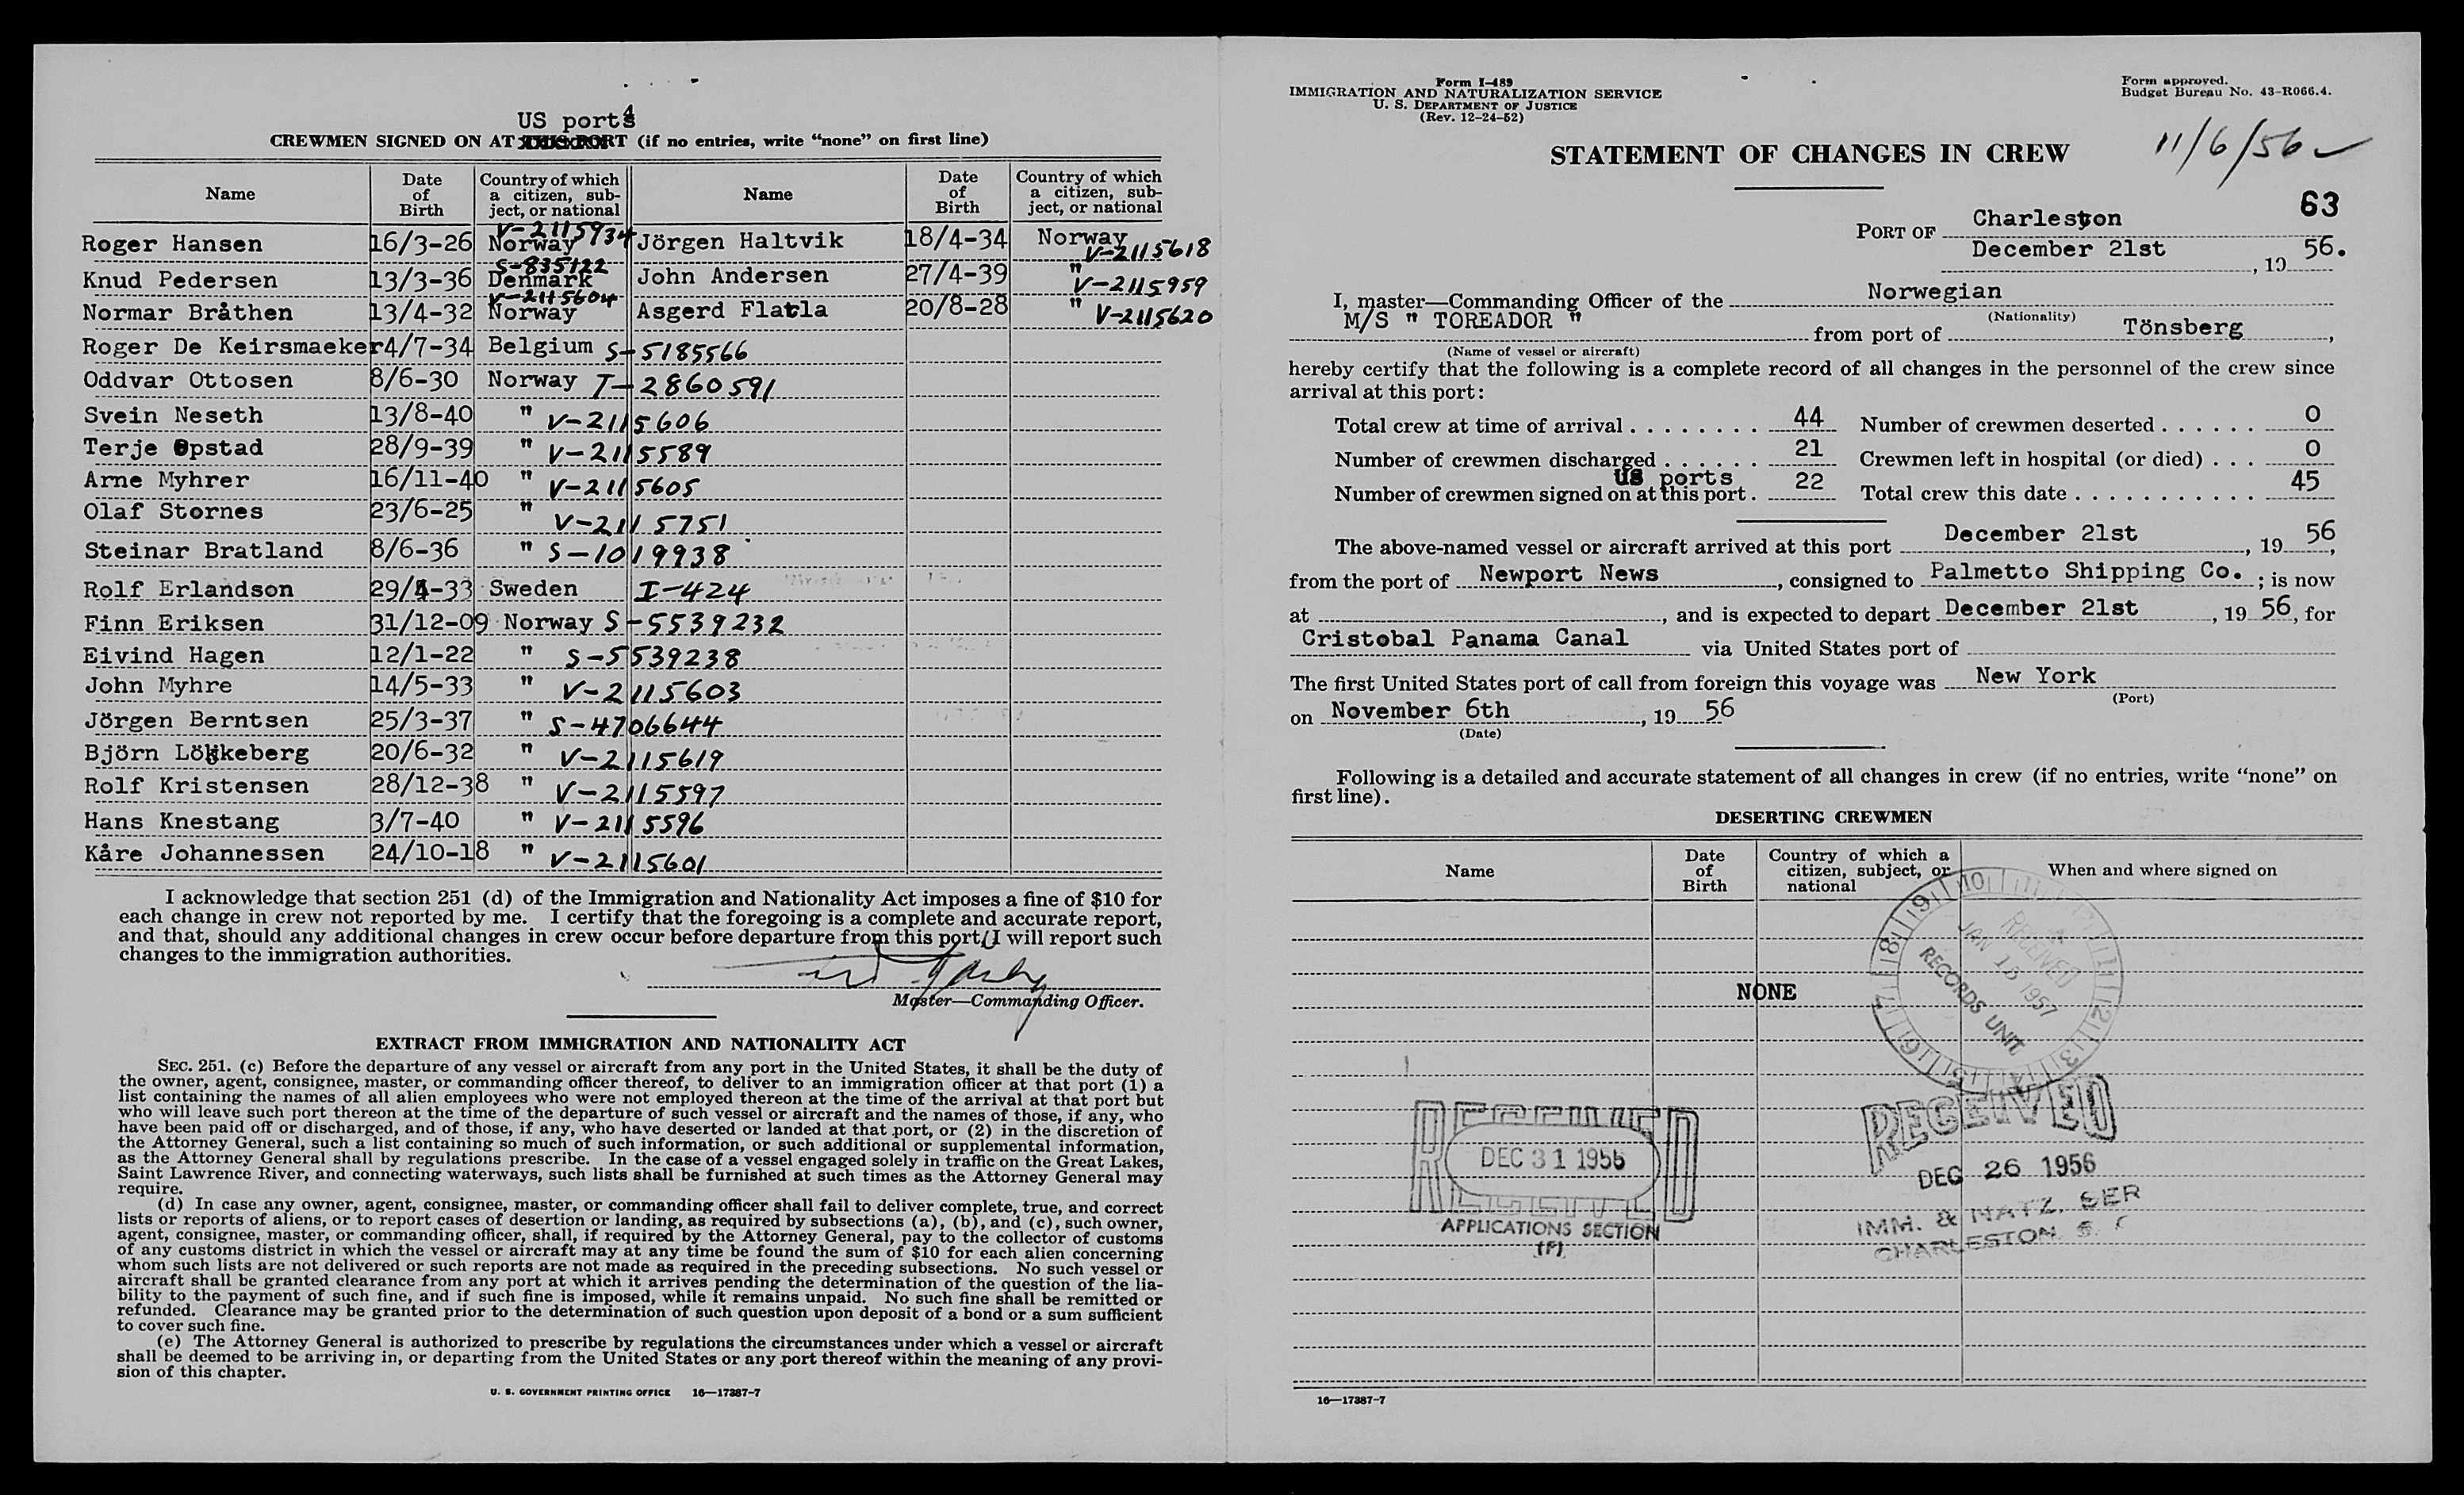 US ports
CREWMEN SIGNED ON AT THIS PORT (if no entries, write “none” on first line)
Name Date of Birth Country of which a citizen, subject, or national Name Date of Birth Country of which a citizen, subject, or national
Roger Hansen 16/3-26 Norway V-2115934 Jörgen Haltvik 18/4-34 Norway V-2115618
Knud Pedersen 13/3-36 Denmark S-835122 John Andersen 27/4-39 " V-2115959
Normar Bråthen 13/4-32 Norway V-2115604 Asgerd Flatla 20/8-28 " V-2115620
Roger De Keirsmaeker 4/7-34 Belgium S-5185566
Oddvar Ottosen 8/6-30 Norway T-2860591
Svein Neseth 13/8-40 " V-2115606
Terje Opstad 28/9-39 " V-2115589
Arne Myhrer 16/11-40 " V-2115605
Olaf Stornes 23/6-25 " V-2115751
Steinar Bratland 8/6-36 " S-1019938
Rolf Erlandson 29/4-33 Sweden I-424
Finn Eriksen 31/12-09 Norway S-5539232
Eivind Hagen 12/1-22 " S-5539238
John Myhre 14/5-33 " V-2115603
Jörgen Berntsen 25/3-37 " S-4706644
Björn Lökkeberg 20/6-32 " V-2115619
Rolf Kristensen 28/12-38 " V-2115597
Hans Knestang 3/7-40 " V-2115596
Kåre Johannessen 24/10-18 " V-2115601
I acknowledge that section 251 (d) of the Immigration and Nationality Act imposes a fine of $10 for
each change in crew not reported by me. I certify that the foregoing is a complete and accurate report,
and that, should any additional changes in crew occur before departure from this port, I will report such
changes to the immigration authorities.
Master—Commanding Officer.
EXTRACT FROM IMMIGRATION AND NATIONALITY ACT
SEC. 251. (c) Before the departure of any vessel or aircraft from any port in the United States, it shall be the duty of
the owner, agent, consignee, master, or commanding officer thereof, to deliver to an immigration officer at that port (1) a
list containing the names of all alien employees who were not employed thereon at the time of the arrival at that port but
who will leave such port thereon at the time of the departure of such vessel or aircraft and the names of those, if any, who
have been paid off or discharged, and of those, if any, who have deserted or landed at that port, or (2) in the discretion of
the Attorney General, such a list containing so much of such information, or such additional or supplemental information,
as the Attorney General shall by regulations prescribe. In the case of a vessel engaged solely in traffic on the Great Lakes,
Saint Lawrence River, and connecting waterways, such lists shall be furnished at such times as the Attorney General may
require.
(d) In case any owner, agent, consignee, master, or commanding officer shall fail to deliver complete, true, and correct
lists or reports of aliens, or to report cases of desertion or landing, as required by subsections (a), (b), and (c), such owner,
agent, consignee, master, or commanding officer, shall, if required by the Attorney General, pay to the collector of customs
of any customs district in which the vessel or aircraft may at any time be found the sum of $10 for each alien concerning
whom such lists are not delivered or such reports are not made as required in the preceding subsections. No such vessel or
aircraft shall be granted clearance from any port at which it arrives pending the determination of the question of the lia-
bility to the payment of such fine, and if such fine is imposed, while it remains unpaid. No such fine shall be remitted or
refunded. Clearance may be granted prior to the determination of such question upon deposit of a bond or a sum sufficient
to cover such fine.
(e) The Attorney General is authorized to prescribe by regulations the circumstances under which a vessel or aircraft
shall be deemed to be arriving in, or departing from the United States or any port thereof within the meaning of any provi-
sion of this chapter.
U. S. GOVERNMENT PRINTING OFFICE 16—17387-7
Form I-489
IMMIGRATION AND NATURALIZATION SERVICE
U. S. DEPARTMENT OF JUSTICE
(Rev. 12-24-52)
Form approved.
Budget Bureau No. 43-R066.4.
11/6/56
STATEMENT OF CHANGES IN CREW
63
PORT OF Charleston
December 21st, 19 56.
I, master—Commanding Officer of the Norwegian
(Nationality)
M/S " TOREADOR " from port of Tönsberg,
(Name of vessel or aircraft)
hereby certify that the following is a complete record of all changes in the personnel of the crew since
arrival at this port:
Total crew at time of arrival 44 Number of crewmen deserted 0
Number of crewmen discharged 21 Crewmen left in hospital (or died) 0
us ports
Number of crewmen signed on at this port 22 Total crew this date 45
The above-named vessel or aircraft arrived at this port December 21st, 19 56,
from the port of Newport News, consigned to Palmetto Shipping Co.; is now
at, and is expected to depart December 21st, 19 56, for
Cristobal Panama Canal via United States port of
The first United States port of call from foreign this voyage was New York
(Port)
on November 6th, 19 56
(Date)
Following is a detailed and accurate statement of all changes in crew (if no entries, write “none” on
first line).
DESERTING CREWMEN
Name Date of Birth Country of which a citizen, subject, or national When and where signed on
NONE
RECEIVED
JAN 15 1957
RECORDS UNIT
RECEIVED
DEC 31 1956
APPLICATIONS SECTION
(F)
RECEIVED
DEC 26 1956
IMM. & NATZ. SER
CHARLESTON S. C
16—17387-7